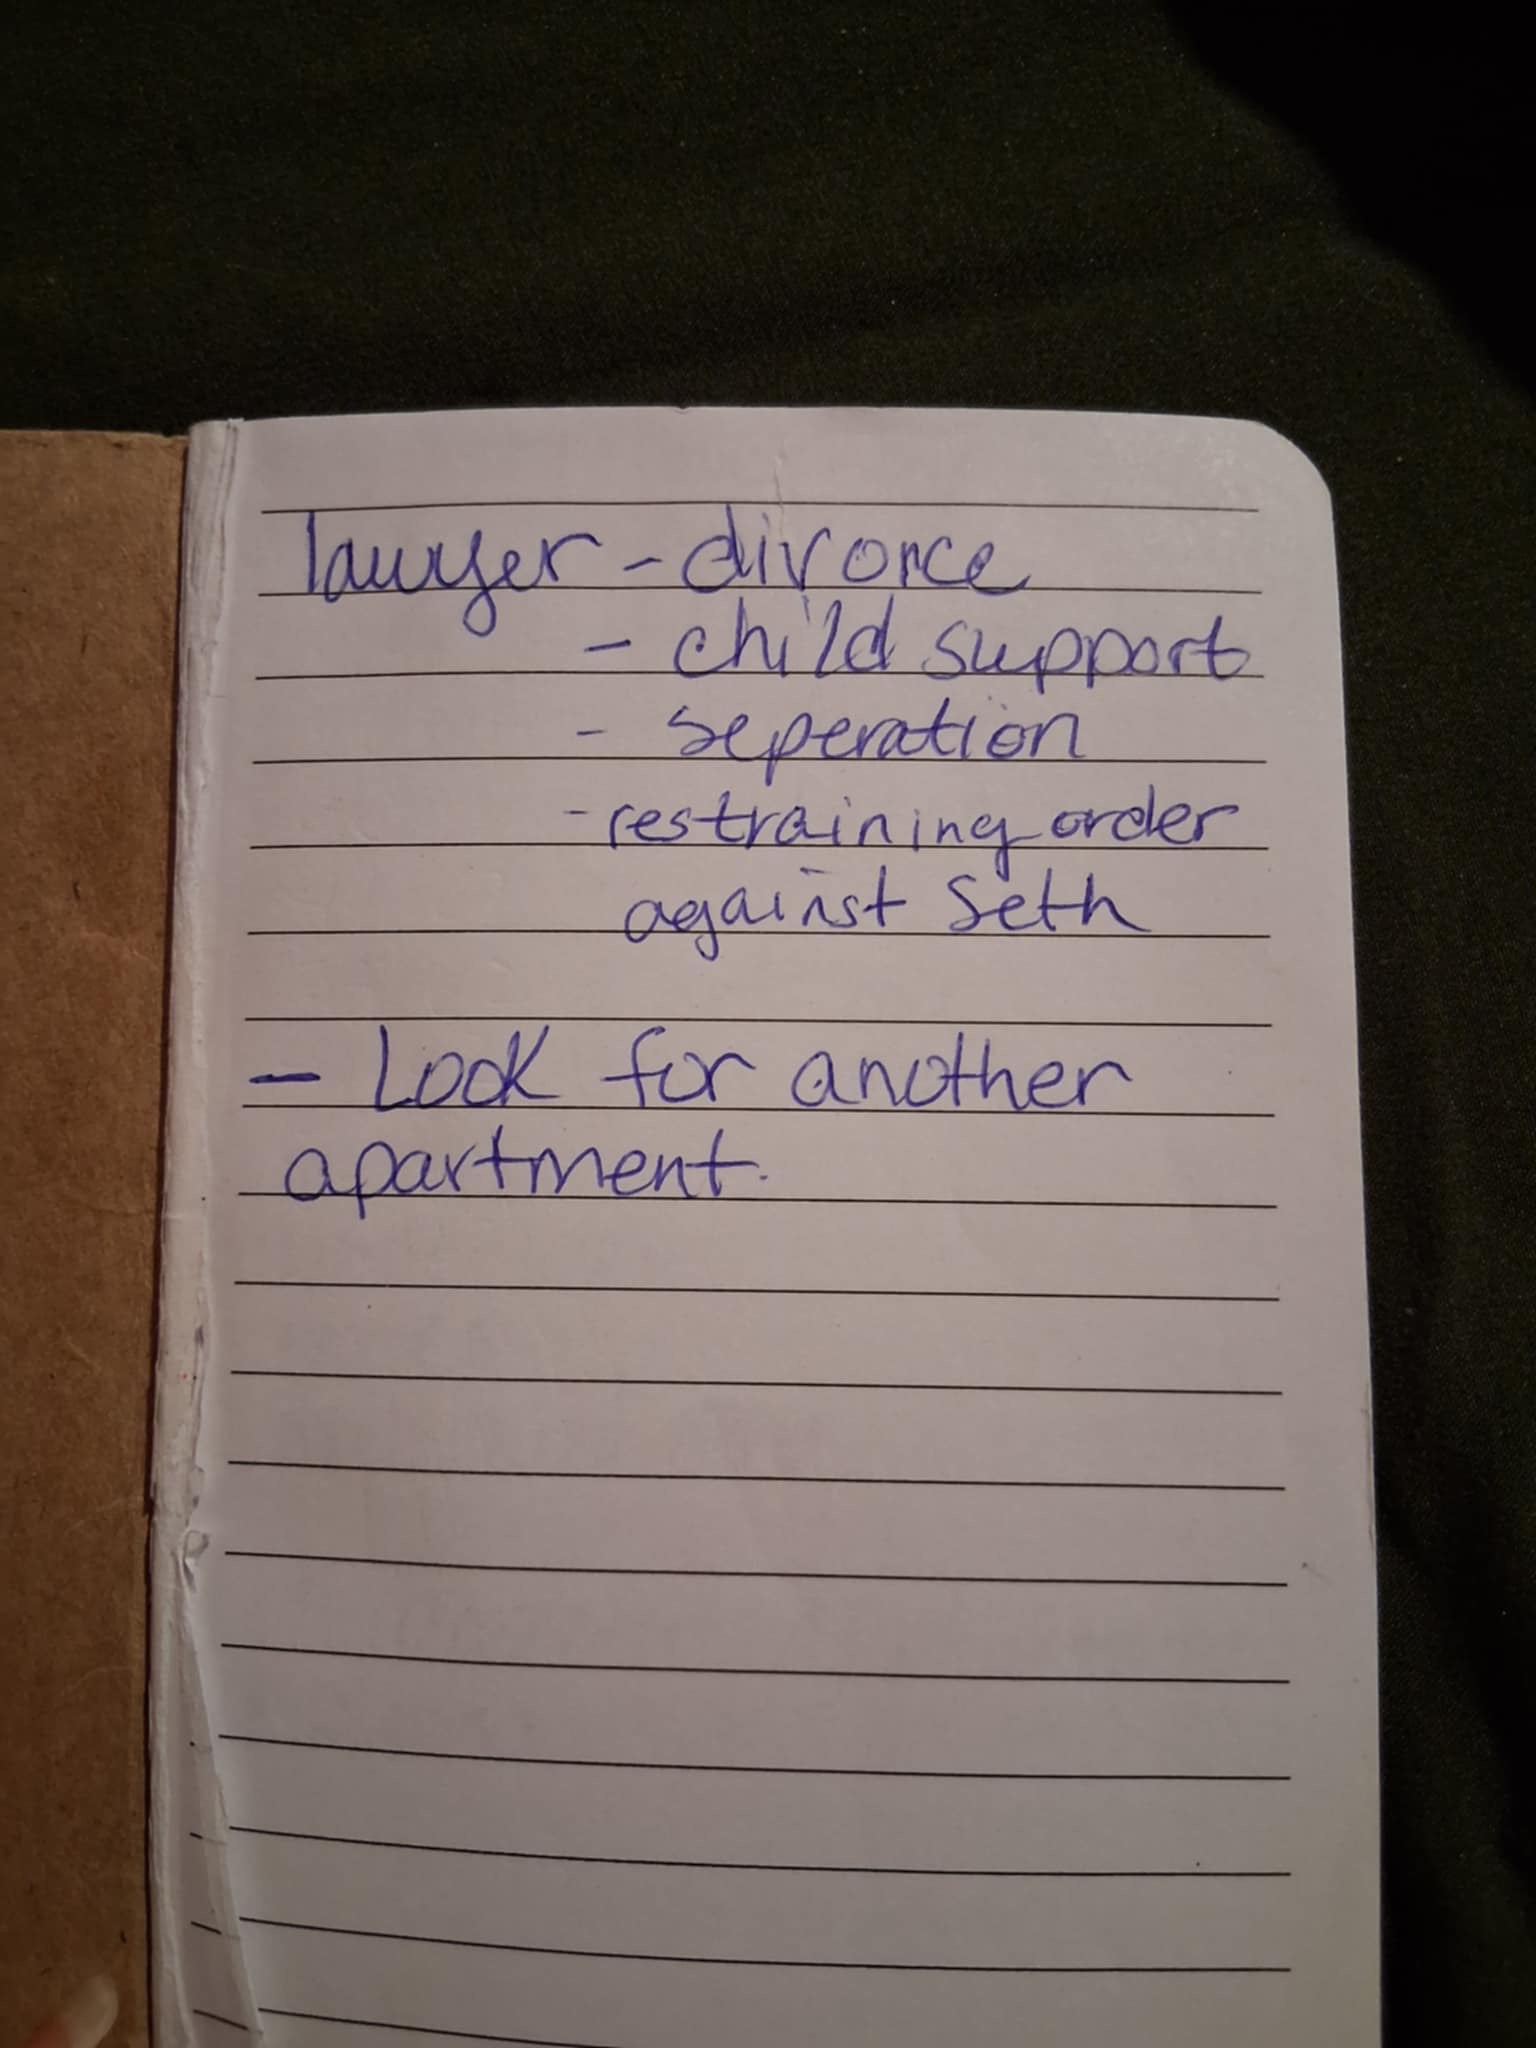 lawyer - divorce
- child support
- seperation
- restraining order
against Seth
- Look for another
apartment.